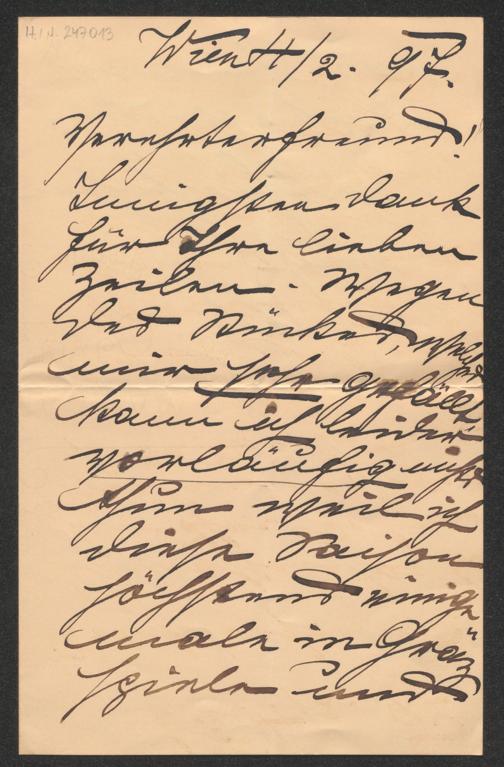 H.I.N. 247013
Wien 4/2. 97.
Verehrter Freund!
Innigsten Dank
für Ihre lieben
Zeilen. Wegen
des Stückes, welches
mir sehr gefällt
kann ich leider
vorläufig nichts
thun weil ich
diese Saison
höchstens einige
male in Graz
spiele und